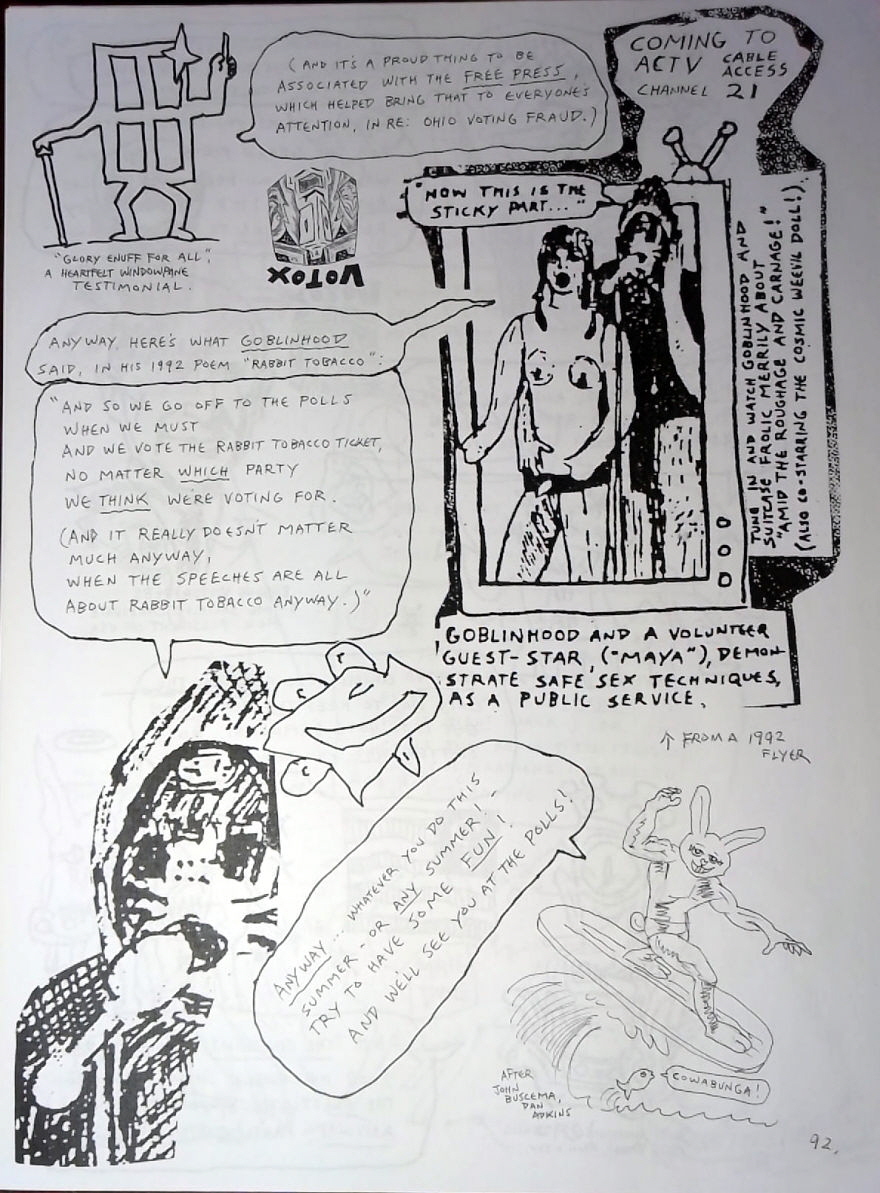 (AND IT'S A PROUD THING TO BE
ASSOCIATED WITH THE FREE PRESS,
WHICH HELPED BRING THAT TO EVERYONE'S
ATTENTION, IN RE: OHIO VOTING FRAUD.)
COMING TO
ACTV CABLE
ACCESS
CHANNEL 21
"NOW THIS IS THE
STICKY PART..."
"GLORY ENUFF FOR ALL",
A HEARTFELT WINDOWPANE
TESTIMONIAL.
VOTOX
TUNE IN AND WATCH GOBLINHOOD AND
SUITCASE FROLIC MERRILY ABOUT
"AMID THE ROUGHAGE AND CARNAGE!"
(ALSO CO-STARRING THE COSMIC WEEVIL DOLL!)
ANYWAY, HERE'S WHAT GOBLINHOOD
SAID, IN HIS 1992 POEM "RABBIT TOBACCO":
"AND SO WE GO OFF TO THE POLLS
WHEN WE MUST
AND WE VOTE THE RABBIT TOBACCO TICKET,
NO MATTER WHICH PARTY
WE THINK WE'RE VOTING FOR.
(AND IT REALLY DOESN'T MATTER
MUCH ANYWAY,
WHEN THE SPEECHES ARE ALL
ABOUT RABBIT TOBACCO ANYWAY.)"
GOBLINHOOD AND A VOLUNTEER
GUEST-STAR, ("MAYA"), DEMON-
STRATE SAFE SEX TECHNIQUES,
AS A PUBLIC SERVICE.
↑ FROM A 1992
FLYER
ANYWAY... WHATEVER YOU DO THIS
SUMMER - OR ANY SUMMER! -
TRY TO HAVE SOME FUN!
AND WE'LL SEE YOU AT THE POLLS!
AFTER
JOHN
BUSCEMA,
DAN
ADKINS
COWABUNGA!
92.